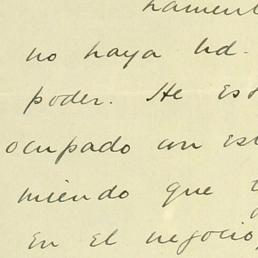 no haya Ud.
poder. He es
ocupado con es
miendo que
En el negocio,